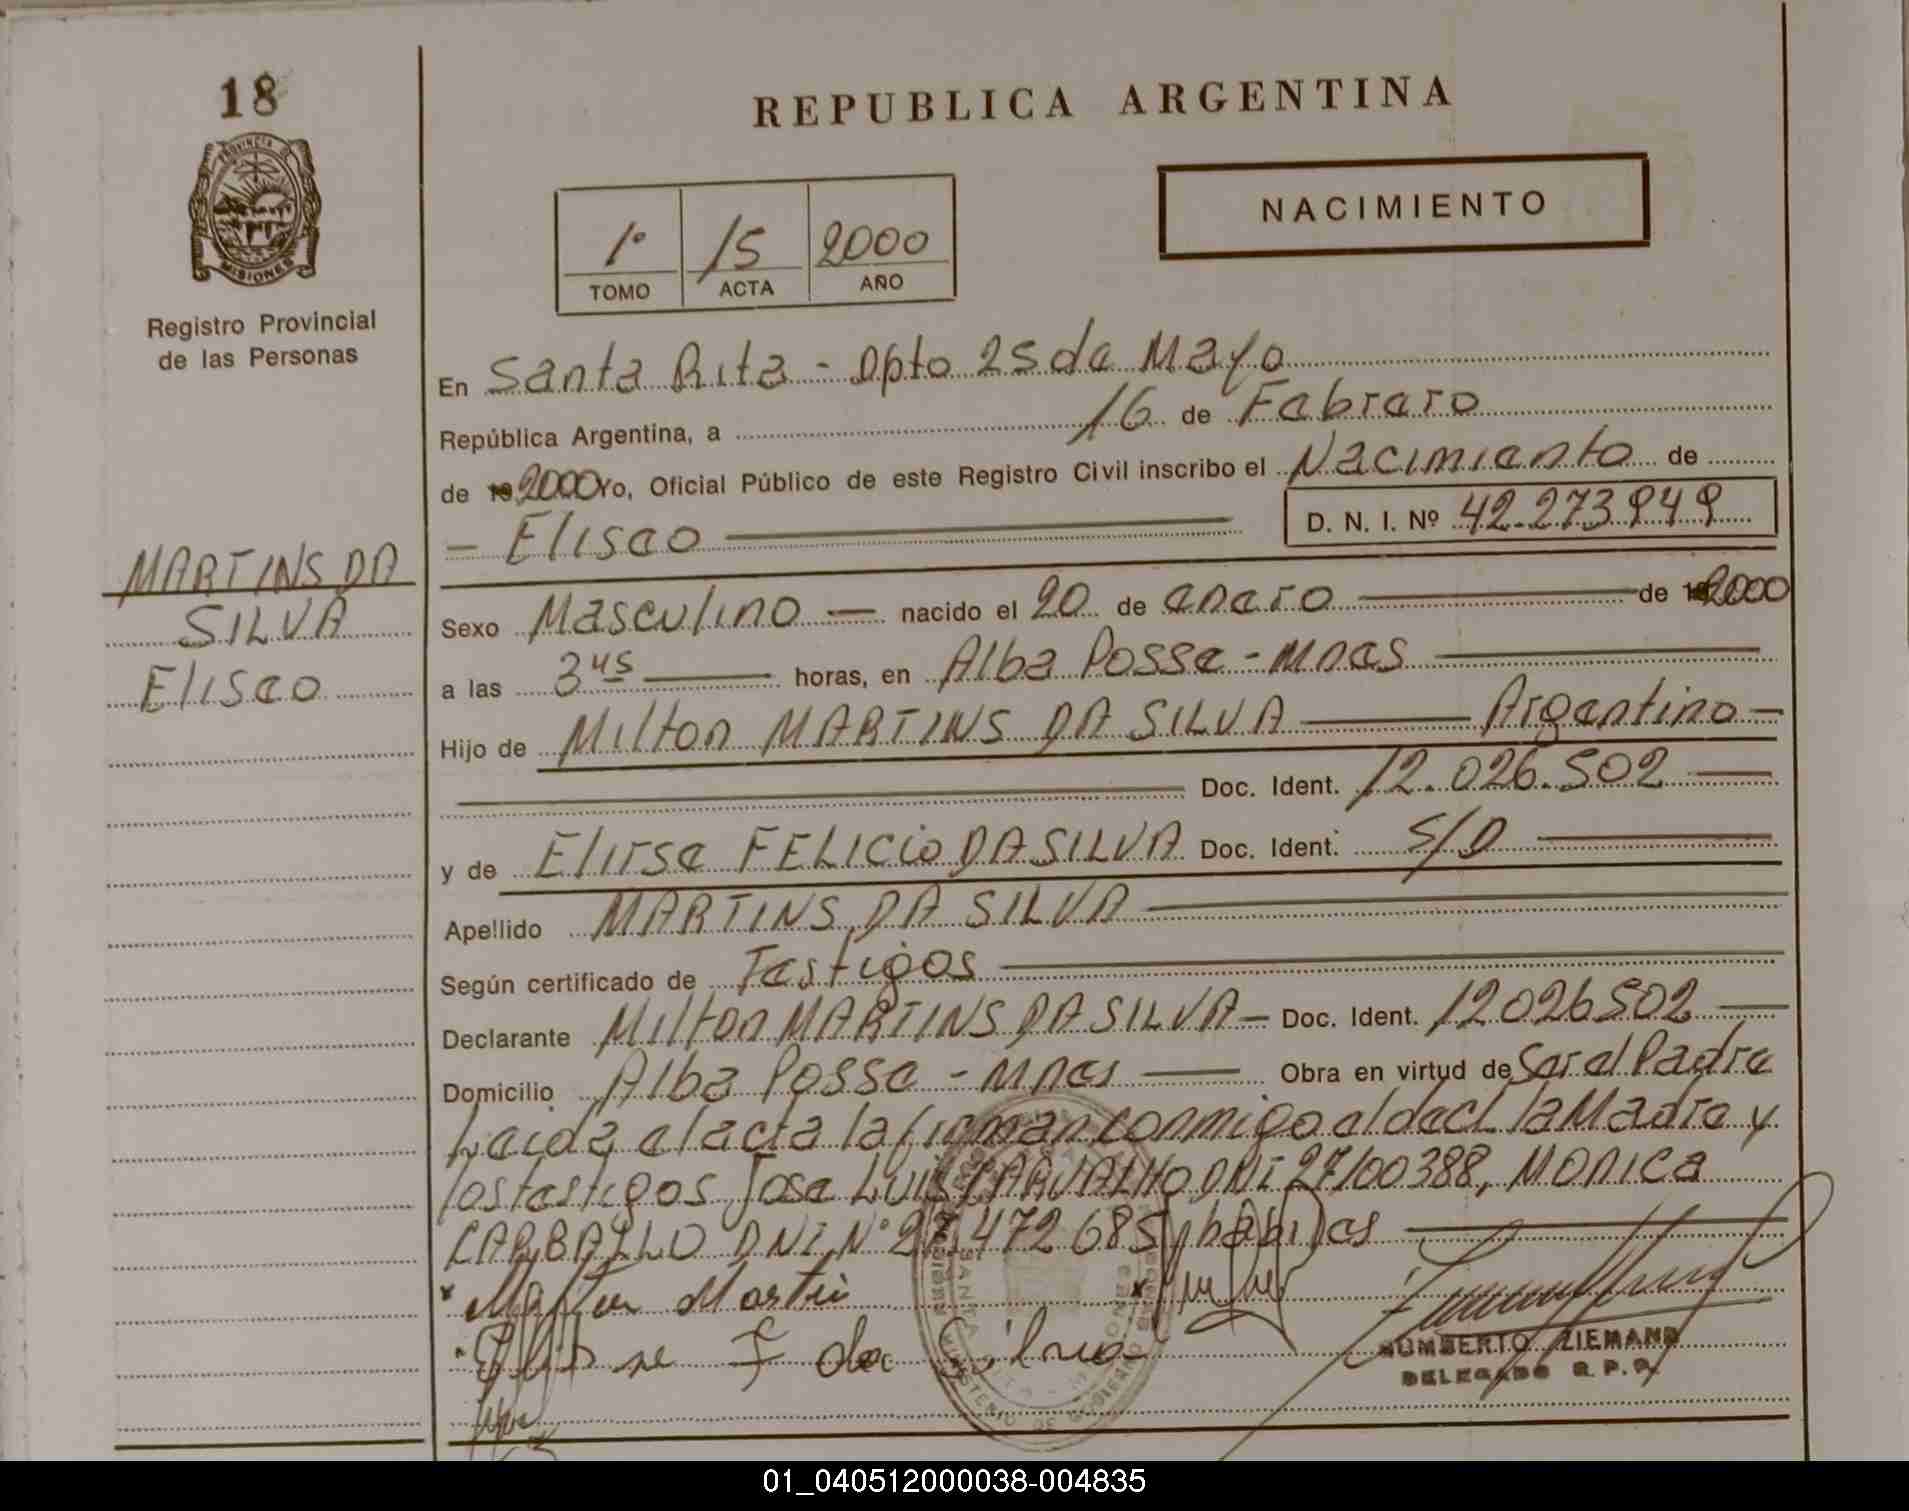 18
PROVINCIA DE
MISIONES
Registro Provincial
de las Personas
MARTINS DA
SILVA
Eliseo
REPUBLICA ARGENTINA
1º 15 2000
TOMO ACTA AÑO
NACIMIENTO
En Santa Rita - Dpto 25 de Mayo
República Argentina, a 16 de Febrero
de 19 2000 Yo, Oficial Público de este Registro Civil inscribo el Nacimiento de
— Eliseo — D. N. I. Nº 42.273.949
Sexo Masculino — nacido el 20 de enero — de 19 2000
a las 3 45 — horas, en Alba Posse - Mnes —
Hijo de Milton MARTINS DA SILVA — Argentino —
Doc. Ident. 12.026.502 —
y de Elirse FELICIO DA SILVA Doc. Ident. S/D —
Apellido MARTINS DA SILVA —
Según certificado de Testigos —
Declarante Milton MARTINS DA SILVA — Doc. Ident. 12026502 —
Domicilio Alba Posse - Mnes — Obra en virtud de Ser el Padre
Leida el acta la firman conmigo el decl. la Madre y
los testigos Jose Luis CARVALHO DNI 27100388, Monica
CARBALLO DNI Nº 472 685 habiles —
HUMBERTO ZIEMANN
DELEGADO R. P. P.
01_040512000038-004835